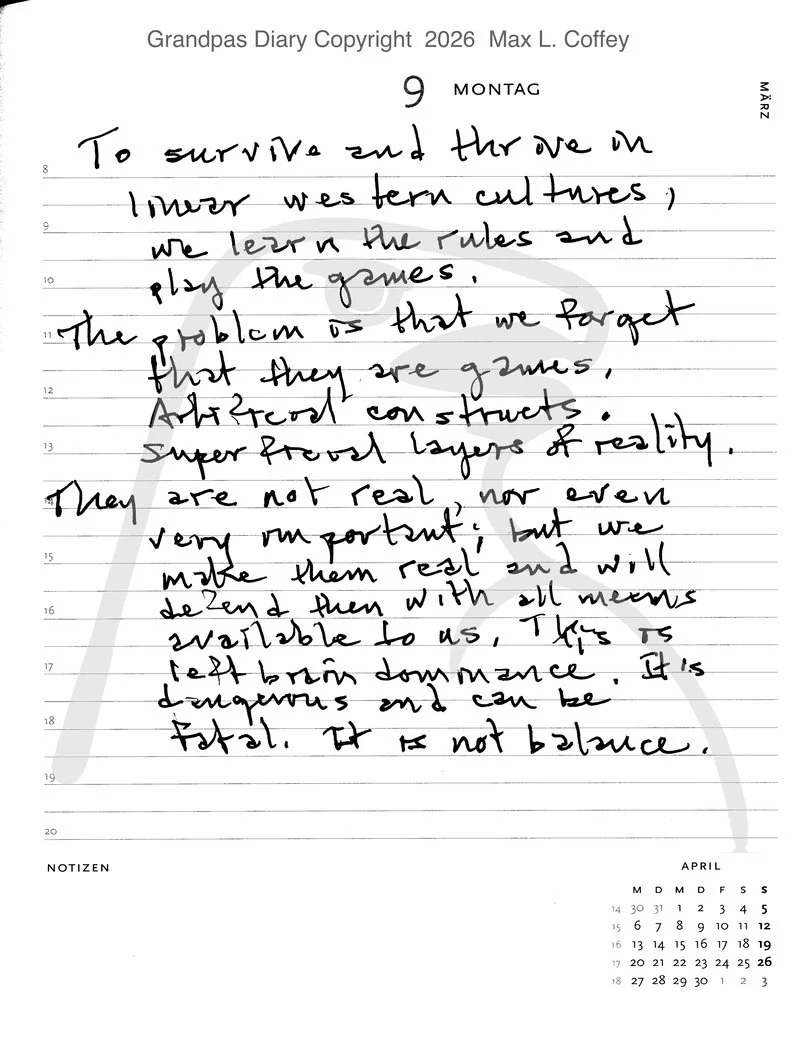 Grandpas Diary Copyright 2026 Max L. Coffey
9 MONTAG
MÄRZ
To survive and thrive in
linear western cultures,
we learn the rules and
play the games.
The problem is that we forget
that they are games,
Artificial constructs.
Superficial layers of reality.
They are not real, nor even
very important; but we
make them real and will
defend them with all means
available to us. This is
left brain dominance. It is
dangerous and can be
fatal. It is not balance.
8
9
10
11
12
13
14
15
16
17
18
19
20
NOTIZEN
APRIL
M D M D F S S
14 30 31 1 2 3 4 5
15 6 7 8 9 10 11 12
16 13 14 15 16 17 18 19
17 20 21 22 23 24 25 26
18 27 28 29 30 1 2 3